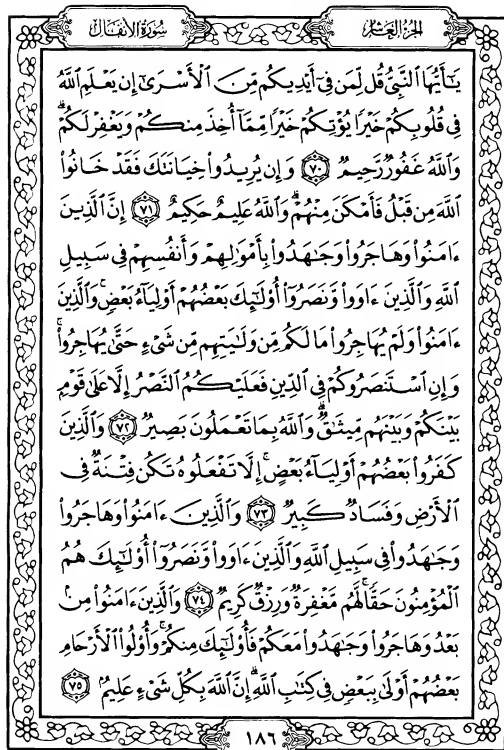 الجزء العاشر
سورة الأنفال
يَٰٓأَيُّهَا ٱلنَّبِيُّ قُل لِّمَن فِىٓ أَيْدِيكُم مِّنَ ٱلْأَسْرَىٰٓ إِن يَعْلَمِ ٱللَّهُ
فِى قُلُوبِكُمْ خَيْرًا يُؤْتِكُمْ خَيْرًا مِّمَّآ أُخِذَ مِنكُمْ وَيَغْفِرْ لَكُمْ ۗ
وَٱللَّهُ غَفُورٌ رَّحِيمٌ ٧٠ وَإِن يُرِيدُوا۟ خِيَانَتَكَ فَقَدْ خَانُوا۟
ٱللَّهَ مِن قَبْلُ فَأَمْكَنَ مِنْهُمْ ۗ وَٱللَّهُ عَلِيمٌ حَكِيمٌ ٧١ إِنَّ ٱلَّذِينَ
ءَامَنُوا۟ وَهَاجَرُوا۟ وَجَٰهَدُوا۟ بِأَمْوَٰلِهِمْ وَأَنفُسِهِمْ فِى سَبِيلِ
ٱللَّهِ وَٱلَّذِينَ ءَاوَوا۟ وَّنَصَرُوٓا۟ أُو۟لَٰٓئِكَ بَعْضُهُمْ أَوْلِيَآءُ بَعْضٍ ۚ وَٱلَّذِينَ
ءَامَنُوا۟ وَلَمْ يُهَاجِرُوا۟ مَا لَكُم مِّن وَلَٰيَتِهِم مِّن شَىْءٍ حَتَّىٰ يُهَاجِرُوا۟ ۚ
وَإِنِ ٱسْتَنصَرُوكُمْ فِى ٱلدِّينِ فَعَلَيْكُمُ ٱلنَّصْرُ إِلَّا عَلَىٰ قَوْمٍ
بَيْنَكُمْ وَبَيْنَهُم مِّيثَٰقٌ ۗ وَٱللَّهُ بِمَا تَعْمَلُونَ بَصِيرٌ ٧٢ وَٱلَّذِينَ
كَفَرُوا۟ بَعْضُهُمْ أَوْلِيَآءُ بَعْضٍ ۚ إِلَّا تَفْعَلُوهُ تَكُن فِتْنَةٌ فِى
ٱلْأَرْضِ وَفَسَادٌ كَبِيرٌ ٧٣ وَٱلَّذِينَ ءَامَنُوا۟ وَهَاجَرُوا۟
وَجَٰهَدُوا۟ فِى سَبِيلِ ٱللَّهِ وَٱلَّذِينَ ءَاوَوا۟ وَّنَصَرُوٓا۟ أُو۟لَٰٓئِكَ هُمُ
ٱلْمُؤْمِنُونَ حَقًّا ۚ لَّهُم مَّغْفِرَةٌ وَرِزْقٌ كَرِيمٌ ٧٤ وَٱلَّذِينَ ءَامَنُوا۟ مِنۢ
بَعْدُ وَهَاجَرُوا۟ وَجَٰهَدُوا۟ مَعَكُمْ فَأُو۟لَٰٓئِكَ مِنكُمْ ۚ وَأُو۟لُوا۟ ٱلْأَرْحَامِ
بَعْضُهُمْ أَوْلَىٰ بِبَعْضٍ فِى كِتَٰبِ ٱللَّهِ ۗ إِنَّ ٱللَّهَ بِكُلِّ شَىْءٍ عَلِيمٌۢ ٧٥
١٨٦